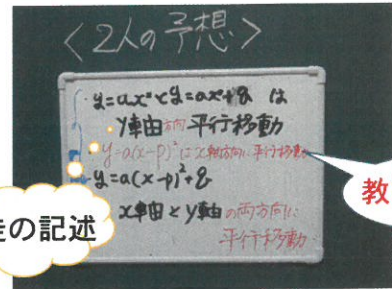 ＜2人の予想＞
・y=ax²とy=ax²+q は
y軸方向 平行移動
・y=a(x-p)²はx軸方向に平行移動
y=a(x-p)²+q
x軸とy軸の両方向に
平行移動
の記述
教